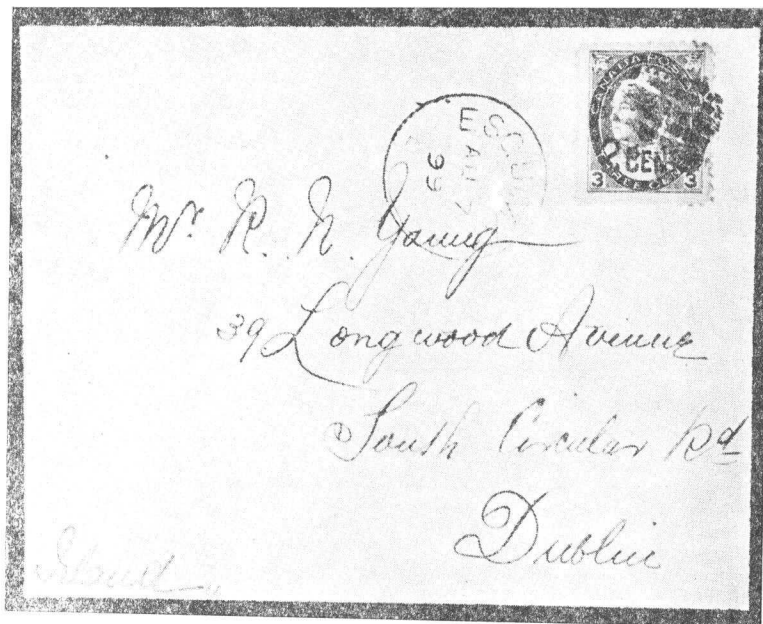 CANADA POSTAGE
2 CENTS
3 3
ESQU
E
AU 7
99
Mr. R. N. Young
39 Longwood Avenue
South Circular Rd
Dublin
Ireland